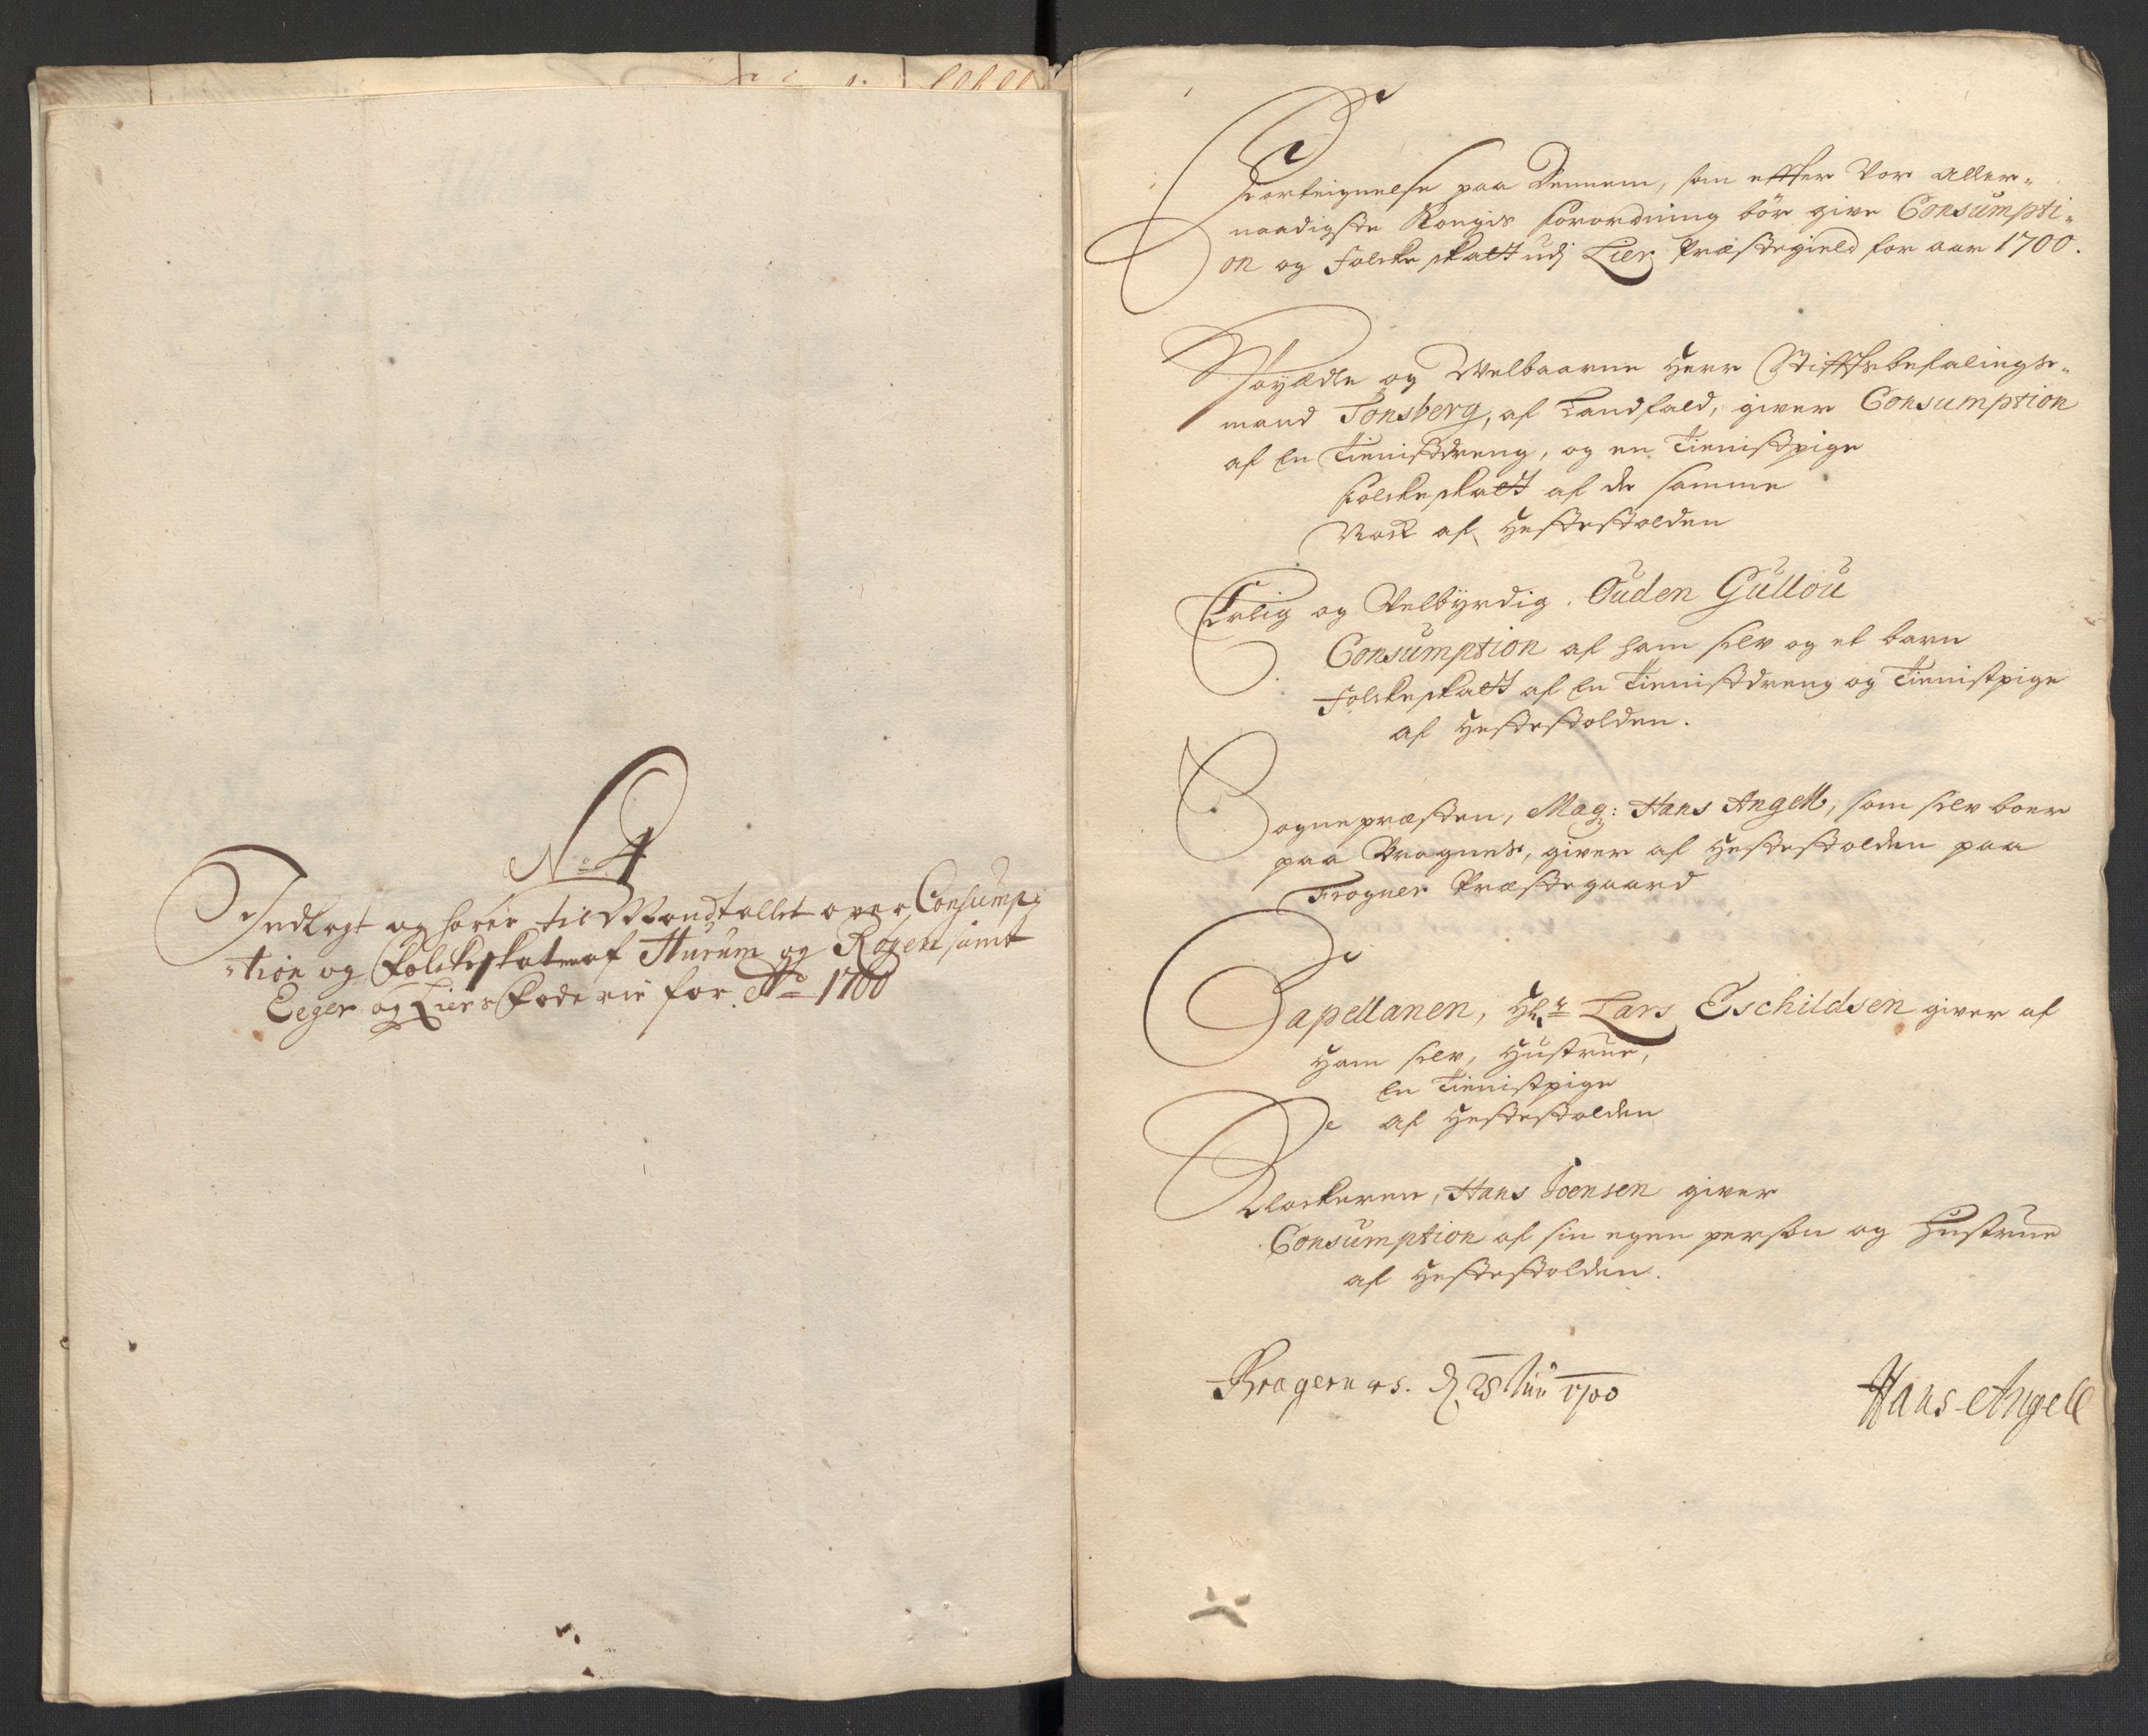 No 4
Indlagt og hører til Mandtallet over Consump-
tion og Folkeskatten af Hurum og Røgen samt
Eeger og Liers Foderie for Ao 1700
Forteignelse paa Dennem, som effter Vor aller-
naadigste Kongis forordning bør give Consumpti-
on og Folcke skatt udj Lier Præstegield for aar 1700.
Høyædle og Welbaarne Herr Stifftsbefalings-
mand Tonsberg, af Landfald, giver Consumption
af En Tienistdreng, og en Tienistpige
folckeskatt af de samme
Nock af Hestestolden
Erlig og Velbyrdig. Ouden Gullou
Consumption af ham selv og et barn
Folckeskatt af En Tienistdreng og Tienistpige
af Hestestolden.
Sognepræsten, Mag: Hans Angell, som selv boer
paa Bragnes, giver af Hestestolden paa
Frogner Præstegaard
Capellanen, Hr Lars Eschildsen giver af
Ham selv, Hustrue,
En Tienistpige
af Hestestolden
Klockeren, Hans Joensen giver
Consumption af sin egen person og Hustrue
af Hestestolden.
Bragernes. d 28 1700
Hans Angell